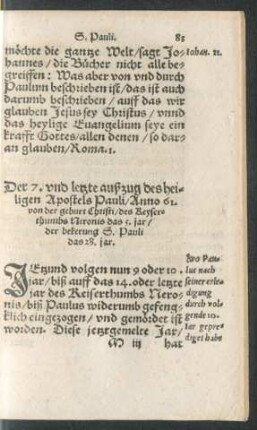 S. Pauli. 81
möchte die gantze Welt/sagt Jo- Iohan. 21.
hannes/ die Bücher nicht alle be-
greiffen: Was aber von vnd durch
Paulum beschrieben ist/das ist auch
darumb beschrieben/ auff das wir
glauben Jesus sey Christus/ vnnd
das heylige Euangelium seye ein
krafft Gottes/allen denen/ so dar-
an glauben/Roma.1.
Der 7. vnd letzte außzug des hei-
ligen Apostels Pauli/Anno 61.
von der geburt Christi/des Keyser-
thumbs Neronis das 5. jar/
der bekerung S. Pauli
das 28. jar.
JEtzund volgen nun 9 oder 10.
jar/biß auff das 14. oder letzte
jar des Keiserthumbs Nero-
nis/biß Paulus widerumb gefeng-
klich eingezogen/ vnd gemördet ist
worden. Diese jetztgemelte Jar/
Wo Pau-
lus nach
seiner erle-
digung
durch vol-
gende 10-
iar gepre-
diget habe
M iij hat